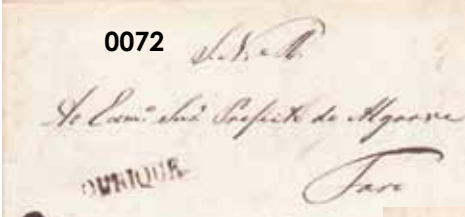 0072
S. N. R.
Ao Exmo. Snr. Prefeito do Algarve
OURIQUE
Faro